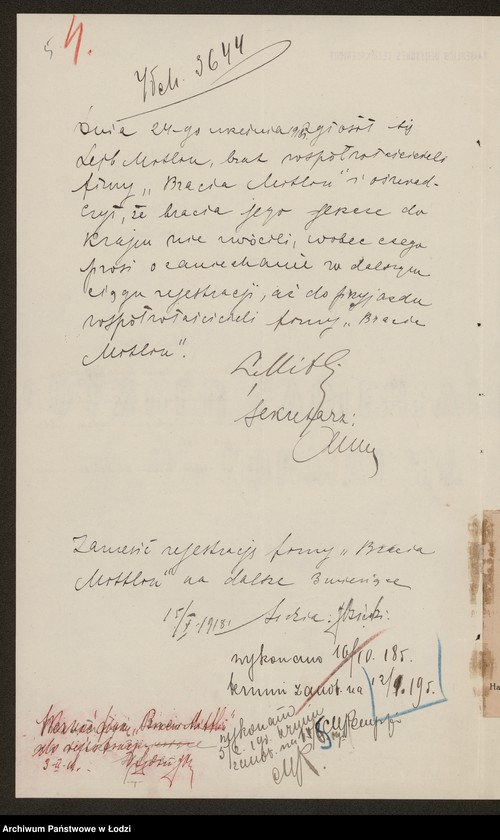 5 4.
Ydch. 3644
Dnia 24-go września 1918 zgłosił się
Lejb Motlou, brat współwłaścicieli
firmy „Bracia Motlou" i oświad-
czył, że bracia jego jeszcze do
Kraju nie wrócili, wobec czego
prosi o zaniechanie w dalszym
ciągu rejestracji, aż do przyjazdu
współwłaścicieli firmy „Bracia
Motlou".
Sekretarz:
Zawiesić rejestrację firmy „Bracia
Mottlou" na dalsze 3 miesiące
15/X 1918. Sędzia:
wykonano 16/10. 18 r.
termin zanot. na 12/1. 19 r.
wykonano
5/2. 19 r. termin
zanot. na
„Bracia
3-II-19.
Archiwum Państwowe w Łodzi